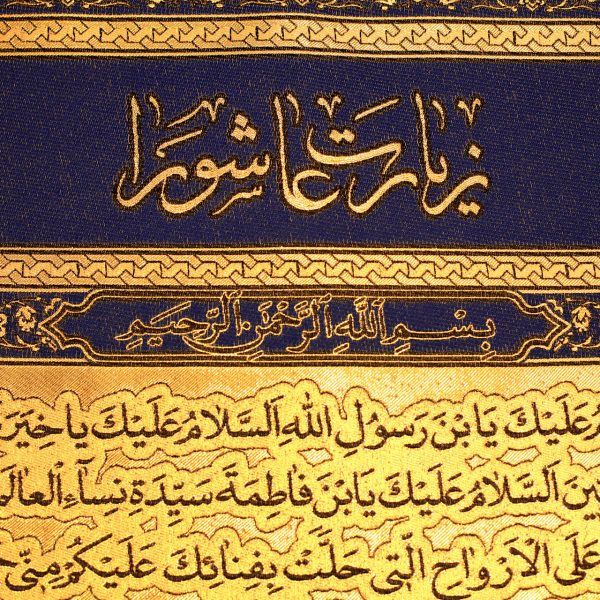 زیارت عاشورا
بِسْمِ اللَّهِ الرَّحْمَنِ الرَّحِيمِ
عَلَيْكَ يَا بْنَ رَسُولِ اللهِ اَلسَّلامُ عَلَيْكَ يا خِيَرَ
اَلسَّلامُ عَلَيْكَ يَابْنَ فاطِمَةَ سَيِّدَةِ نِساءِ الْعالَم
عَلَى الْاَرْواحِ الَّتى حَلَّتْ بِفِنائِكَ عَلَيْكُمْ مِنّى